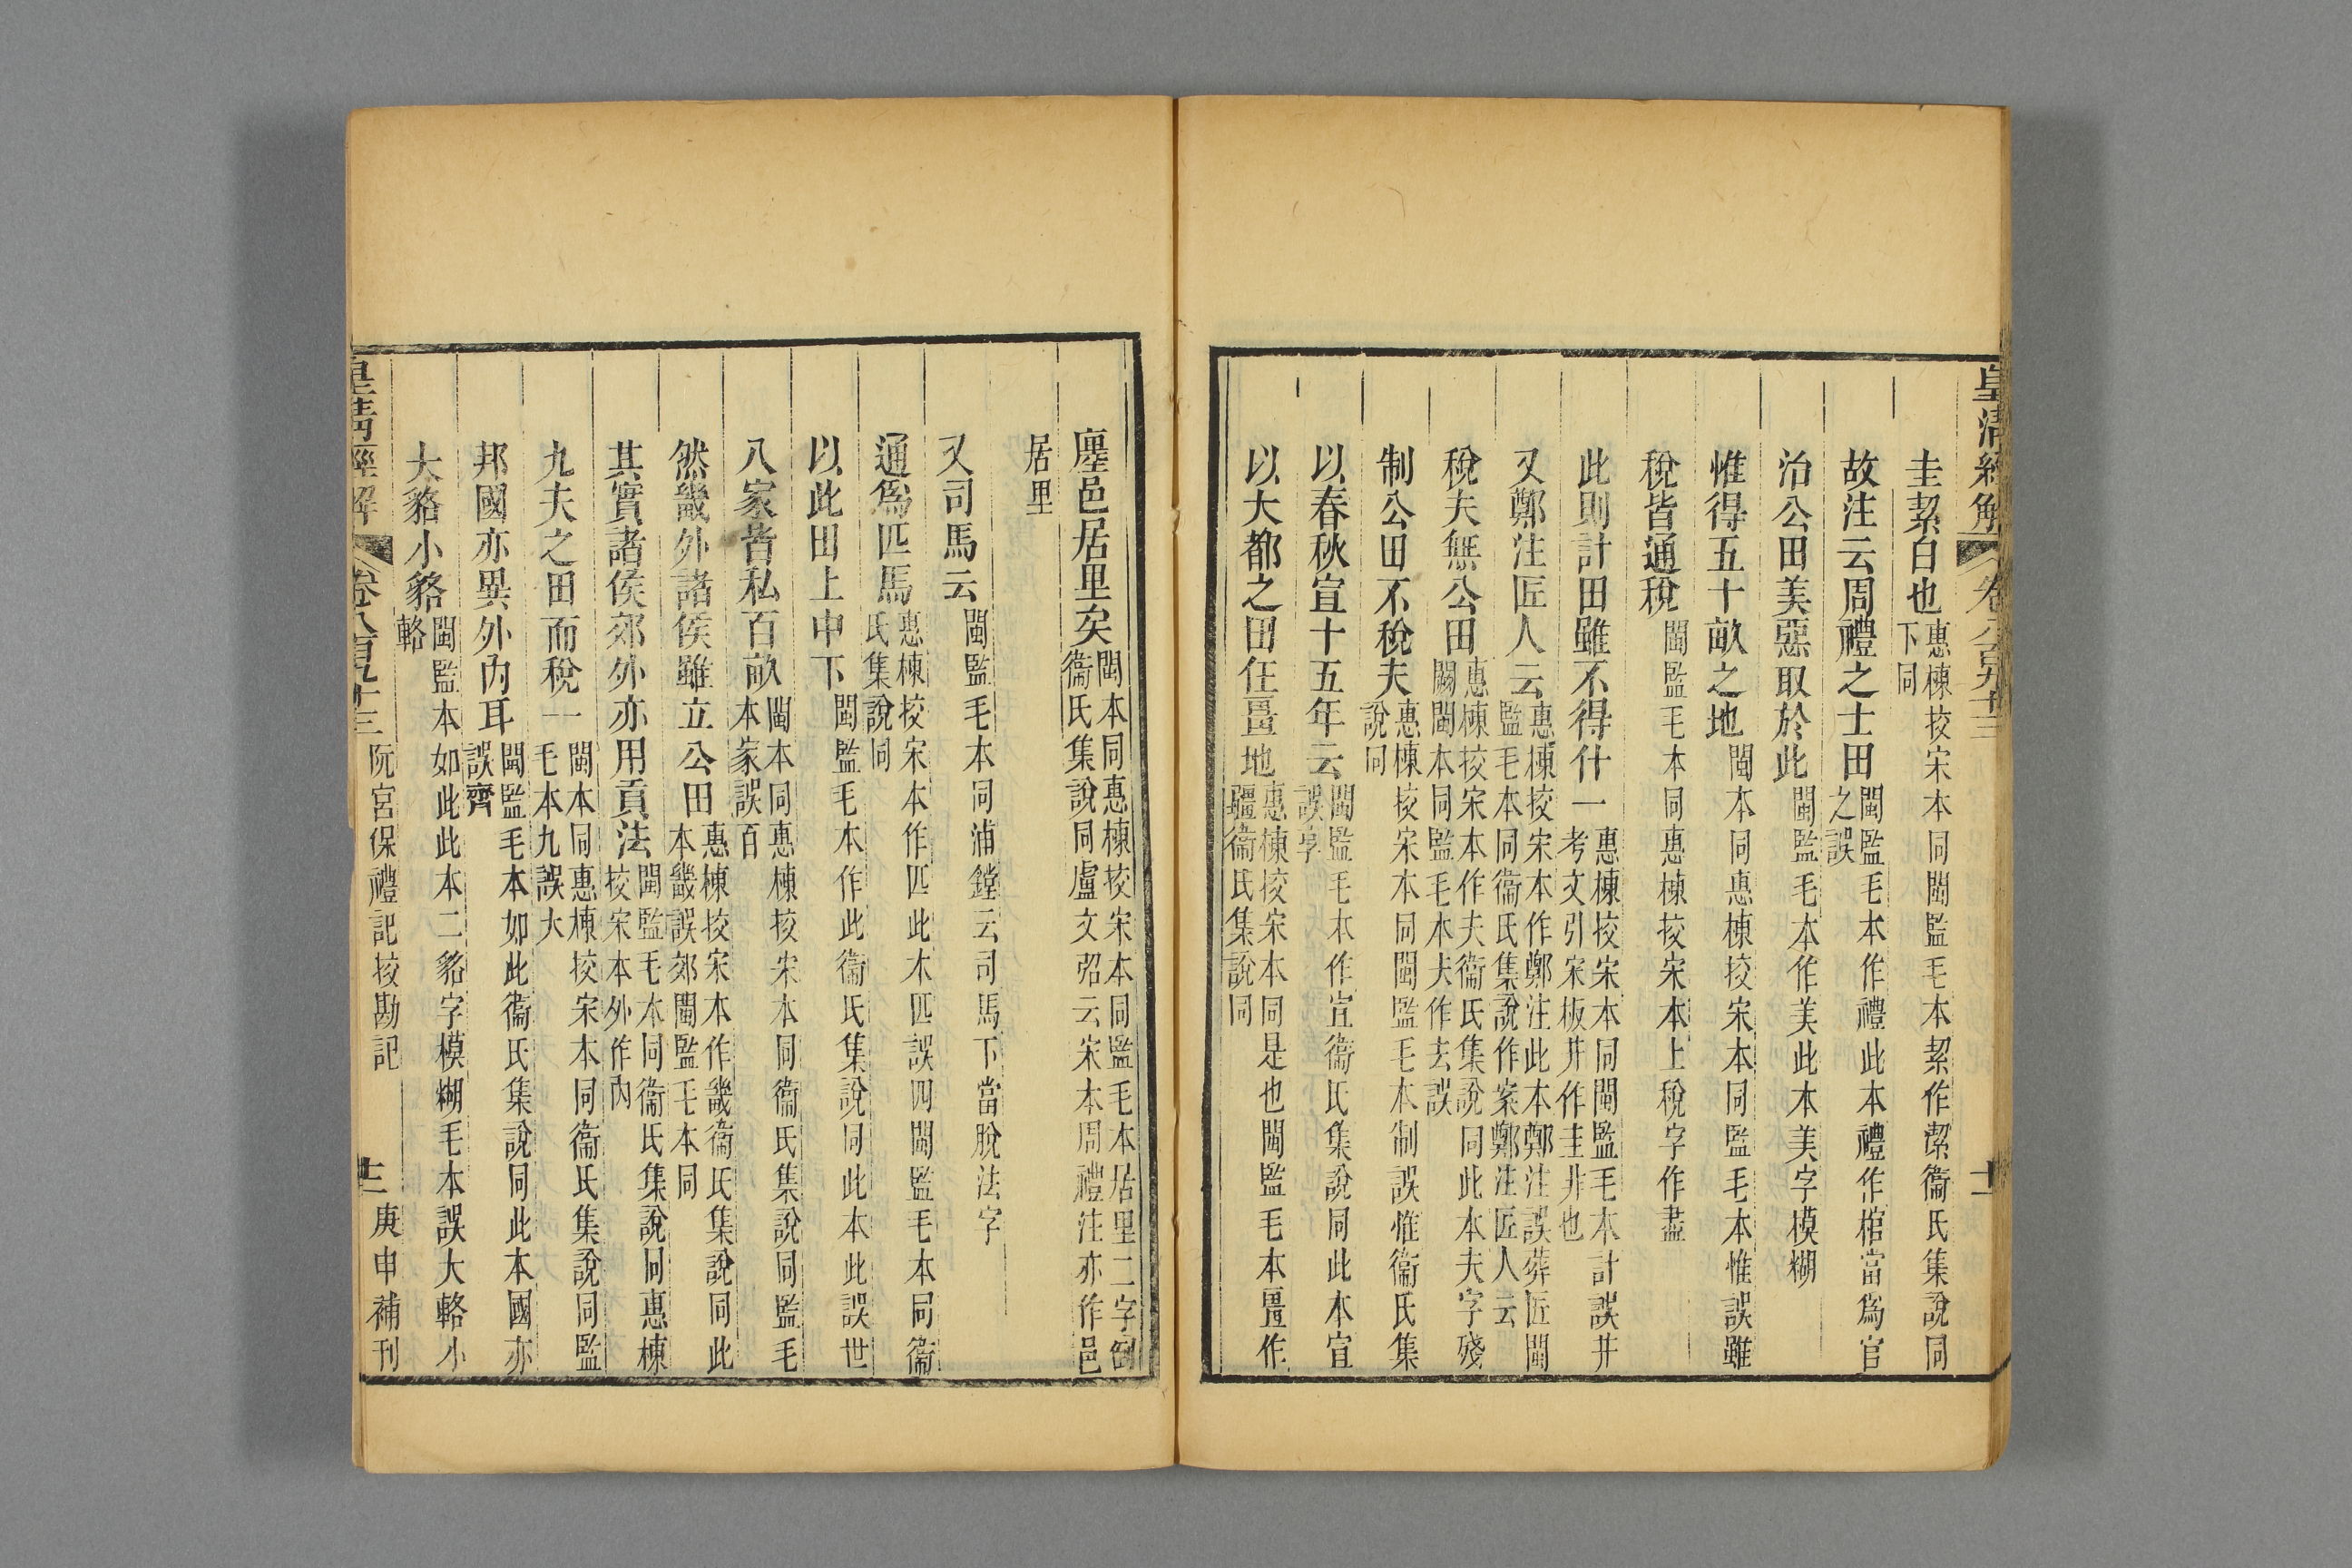 皇清經解 卷八百九十三 十一
圭絜白也惠棟挍宋本同閩監毛本絜作潔衞氏集說同下同
故注云周禮之士田閩監毛本作禮此本禮作棺當爲官之誤
治公田美惡取於此閩監毛本作美此本美字模糊
惟得五十畝之地閩本同惠棟挍宋本同監毛本惟誤雖
稅皆通稅閩監毛本同惠棟挍宋本上稅字作盡
此則計田雖不得什一惠棟挍宋本同閩監毛本計誤井考文引宋板井作圭非也
又鄭注匠人云惠棟挍宋本作鄭注此本鄭注誤葬匠閩監毛本同衞氏集說作案鄭注匠人云
稅夫無公田惠棟挍宋本作夫衞氏集說同此本夫字殘闕閩本同監毛本夫作去誤
制公田不稅夫惠棟挍宋本同閩監毛本制誤惟衞氏集說同
以春秋宣十五年云閩監毛本作宣衞氏集說同此本宣誤享
以大都之田任畺地惠棟挍宋本同是也閩監毛本畺作疆衞氏集說同
廛邑居里矣閩本同惠棟挍宋本同監毛本居里二字倒衞氏集說同盧文弨云宋本周禮注亦作邑
居里
又司馬云閩監毛本同浦鏜云司馬下當脫法字
通爲匹馬惠棟挍宋本作匹此本匹誤四閩監毛本同衞氏集說同
以此田上中下閩監毛本作此衞氏集說同此本此誤世
八家皆私百畝閩本同惠棟挍宋本同衞氏集說同監毛本家誤百
然畿外諸侯雖立公田惠棟挍宋本作畿衞氏集說同此本畿誤郊閩監毛本同
其實諸侯郊外亦用貢法閩監毛本同衞氏集說同惠棟挍宋本外作內
九夫之田而稅一閩本同惠棟挍宋本同衞氏集說同監毛本九誤大
邦國亦異外內耳閩監毛本如此衞氏集說同此本國亦誤齊
大貉小貉閩監本如此此本二貉字模糊毛本誤大輅小輅
皇清經解 卷八百九十三 阮宮保禮記挍勘記 十二 庚申補刊